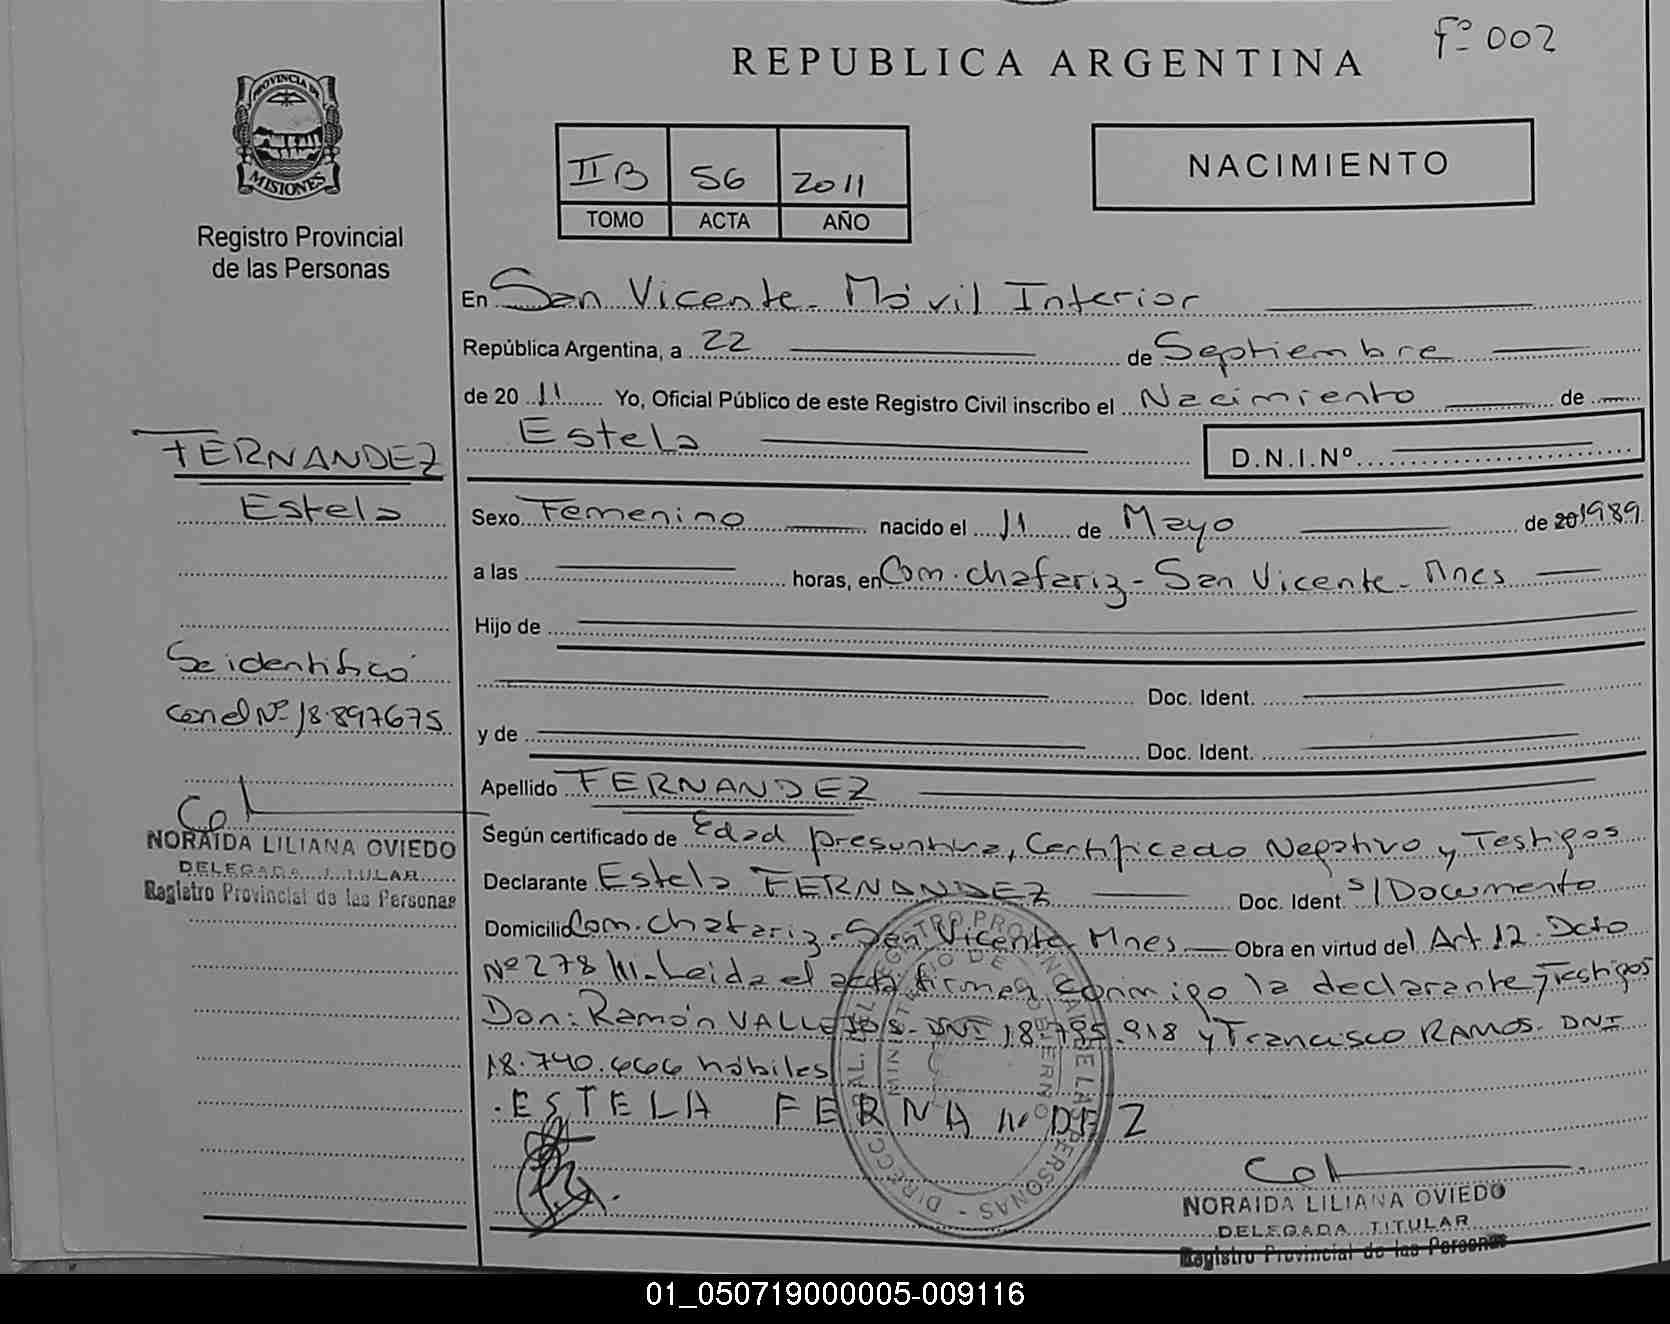 fº 002
REPUBLICA ARGENTINA
PROVINCIA DE
MISIONES
Registro Provincial
de las Personas
IIB 56 2011
TOMO ACTA AÑO
NACIMIENTO
En San Vicente - Móvil Interior
República Argentina, a 22 de Septiembre
de 20 11 Yo, Oficial Público de este Registro Civil inscribo el Nacimiento de
Estela D.N.I.Nº
FERNANDEZ
Estela
Sexo Femenino nacido el 11 de Mayo de 20 1989
a las horas, en Com. chafariz - San Vicente - Mnes
Hijo de
Doc. Ident.
y de Doc. Ident.
Se identificó
con el Nº 18.897675
NORAIDA LILIANA OVIEDO
DELEGADA TITULAR
Registro Provincial de las Personas
Apellido FERNANDEZ
Según certificado de Edad presuntiva, Certificado Negativo y Testigos
Declarante Estela FERNANDEZ Doc. Ident. s/Documento
Domicilio Com. chafariz - San Vicente - Mnes Obra en virtud del Art 12 - Dcto
Nº 278/11 - Leida el acta firman conmigo la declarante y Testigos
Don: Ramón VALLEJOS - DNI 18.795.918 y Francisco RAMOS - DNI
18.740.666 hábiles
ESTELA FERNANDEZ
DIRECC. GRAL. DEL REGISTRO PROVINCIAL DE LAS PERSONAS -
MINISTERIO DE GOBIERNO
NORAIDA LILIANA OVIEDO
DELEGADA TITULAR
Registro Provincial de las Personas
01_050719000005-009116